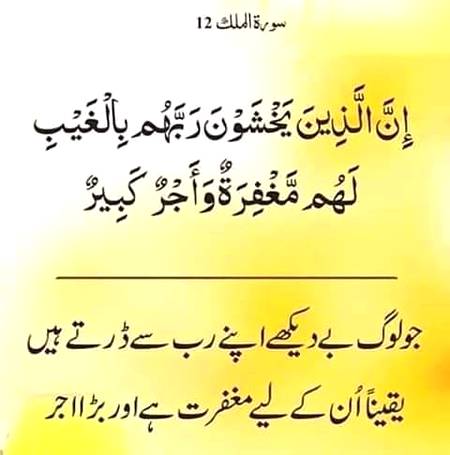 سورة الملك 12
إِنَّ الَّذِينَ يَخْشَوْنَ رَبَّهُم بِالْغَيْبِ
لَهُم مَّغْفِرَةٌ وَأَجْرٌ كَبِيرٌ
جو لوگ بے دیکھے اپنے رب سے ڈرتے ہیں
یقیناً اُن کے لیے مغفرت ہے اور بڑا اجر